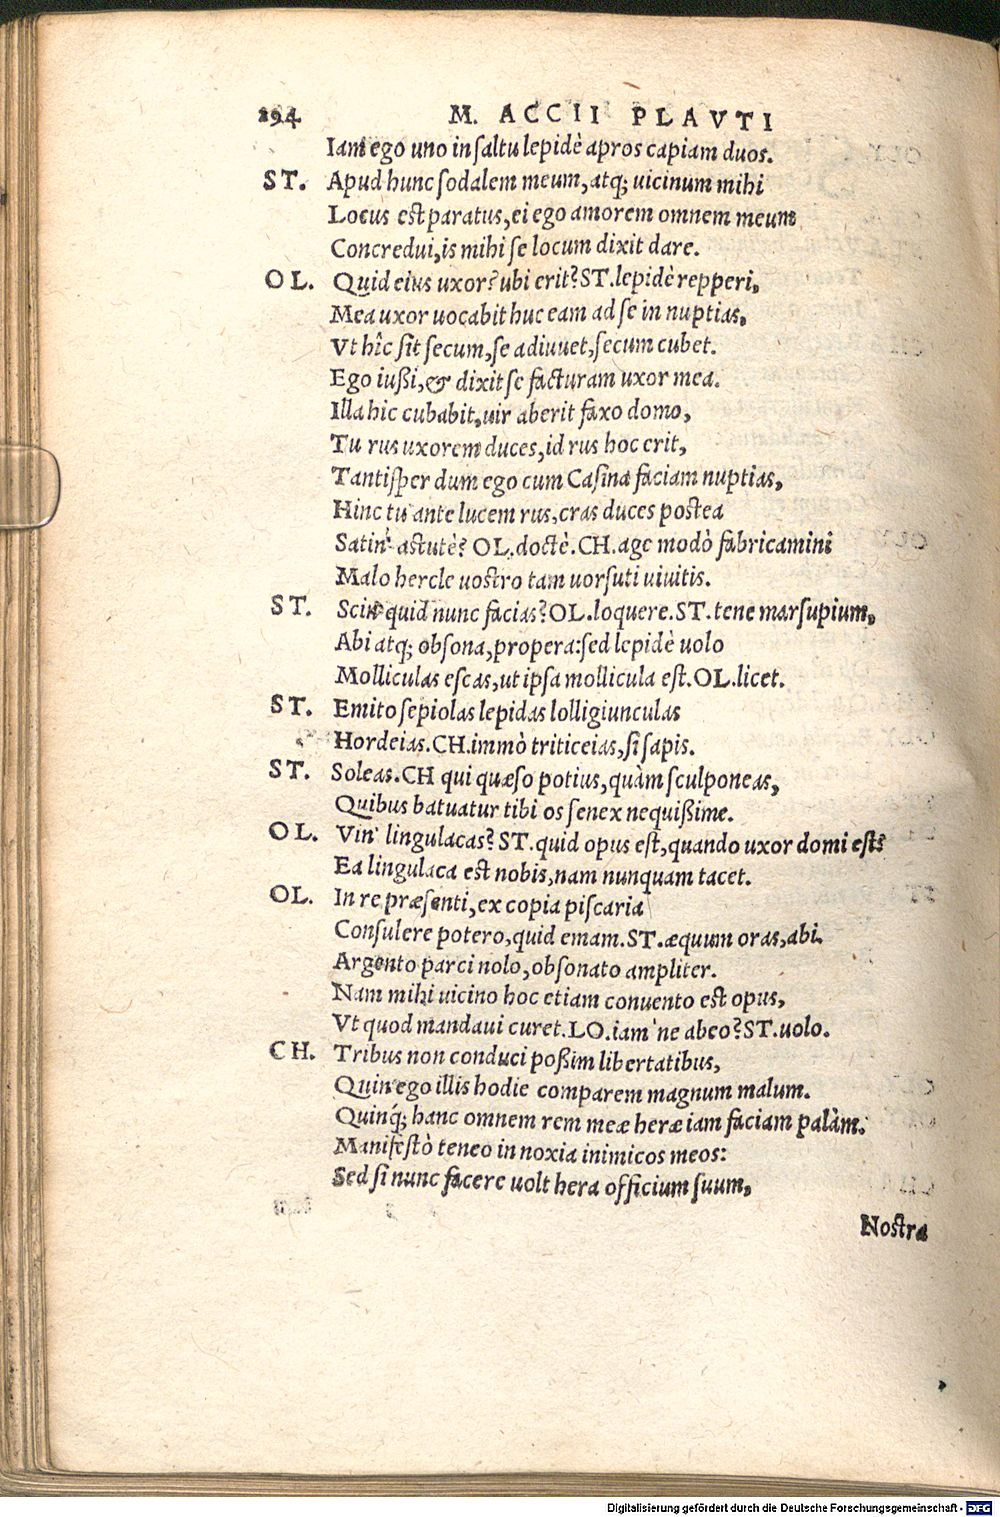 294 M. ACCII PLAVTI
Iam ego uno in saltu lepidè apros capiam duos.
ST. Apud hunc sodalem meum, atq; uicinum mihi
Locus est paratus, ei ego amorem omnem meum
Concredui, is mihi se locum dixit dare.
OL. Quid eius uxor? ubi erit? ST. lepidè repperi,
Mea uxor uocabit huc eam ad se in nuptias,
Vt hîc sit secum, se adiuuet, secum cubet.
Ego iußi, & dixit se facturam uxor mea.
Illa hic cubabit, uir aberit faxo domo,
Tu rus uxorem duces, id rus hoc erit,
Tantisper dum ego cum Casina faciam nuptias,
Hinc tu ante lucem rus, cras duces postea
Satin' astutè? OL. doctè. CH. age modò fabricamini
Malo hercle uostro tam uorsuti uiuitis.
ST. Scin' quid nunc facias? OL. loquere. ST. tene marsupium,
Abi atq; obsona, propera: sed lepidè uolo
Molliculas escas, ut ipsa mollicula est. OL. licet.
ST. Emito sepiolas lepidas lolligiunculas
Hordeias. CH. immò triticeias, si sapis.
ST. Soleas. CH qui quæso potius, quàm sculponeas,
Quibus batuatur tibi os senex nequißime.
OL. Vin' lingulacas? ST. quid opus est, quando uxor domi est?
Ea lingulaca est nobis, nam nunquam tacet.
OL. In re præsenti, ex copia piscaria
Consulere potero, quid emam. ST. æquum oras, abi.
Argento parci nolo, obsonato ampliter.
Nam mihi uicino hoc etiam conuento est opus,
Vt quod mandaui curet. LO. iam'ne abeo? ST. uolo.
CH. Tribus non conduci poßim libertatibus,
Quin ego illis hodie comparem magnum malum.
Quinq́; hanc omnem rem meæ heræ iam faciam palàm.
Manifestò teneo in noxia inimicos meos:
Sed si nunc facere uolt hera officium suum,
Nostra
Digitalisierung gefördert durch die Deutsche Forschungsgemeinschaft - DFG